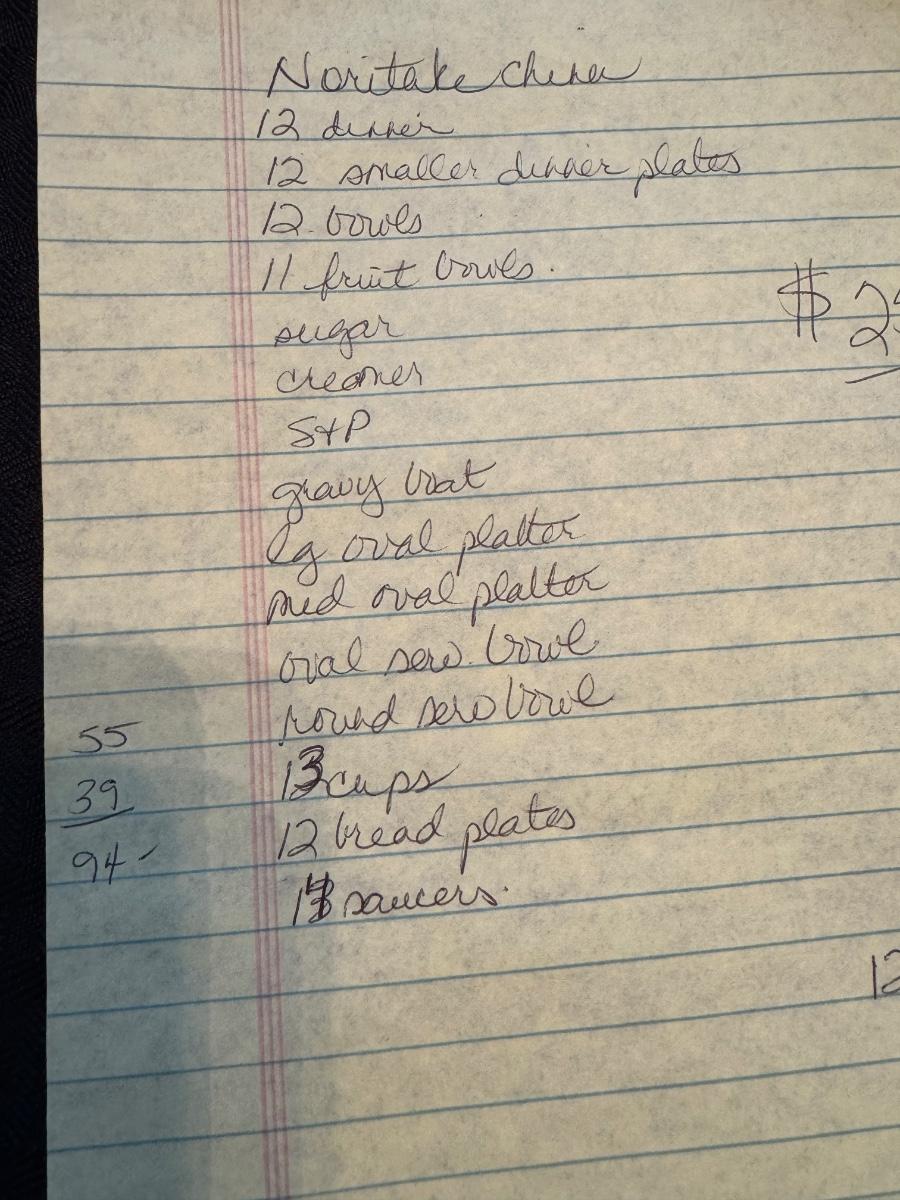 Noritake China
12 dinner
12 smaller dinner plates
12 bowls
11 fruit bowls.
$ 2
sugar
creamer
S+P
gravy boat
lg oval platter
med oval platter
oval serv. bowl
round serv bowl
55
13 cups
39
12 bread plates
94 -
saucers.
12